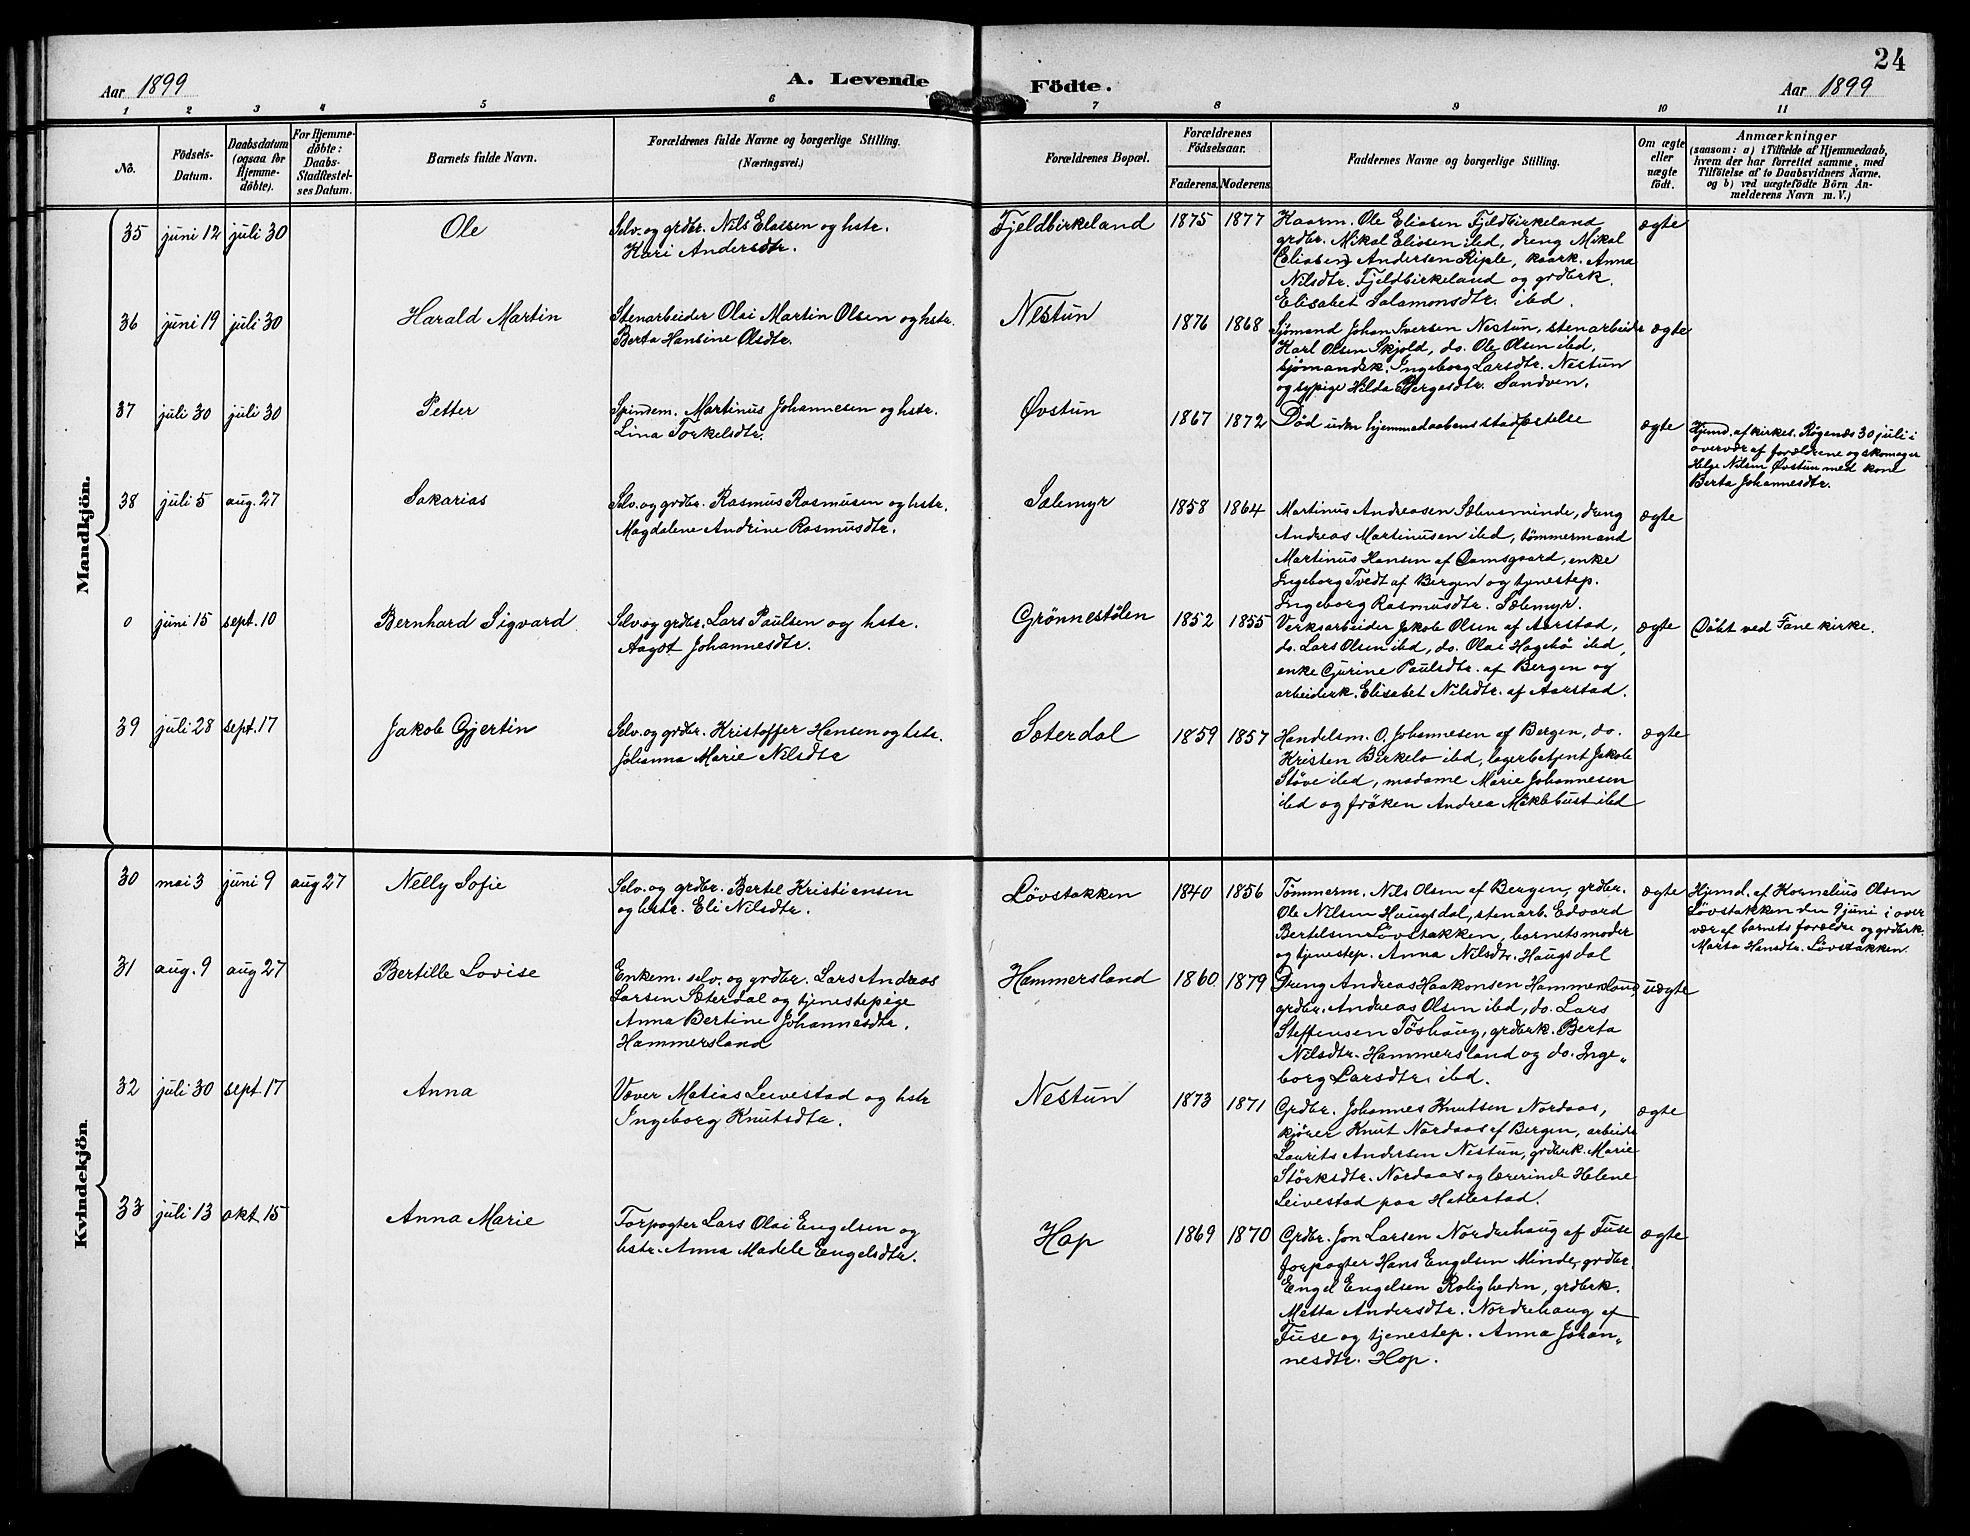 24
Aar 1899
A. Levende Födte.
Aar 1899
1 2 3 4 5 6 7 8 9 10 11
No.
Födsels-Datum.
Daabsdatum (ogsaa for Hjemme-döbte).
For Hjemme-döbte: Daabs-Stadfæstel-ses Datum.
Barnets fulde Navn.
Forældrenes fulde Navne og borgerlige Stilling.
(Næringsvei.)
Forældrenes Bopæl.
Forældrenes Födselsaar.
Faderens. Moderens.
Faddernes Navne og borgerlige Stilling.
Om ægte eller uægte födt.
Anmærkninger
(saasom: a) i Tilfælde af Hjemmedaab,
hvem der har forrettet samme, med
Tilföielse af to Daabsvidners Navne,
og b) ved uægtefödte Börn An-
melderens Navn m. V.)
Mandkjön.
35 juni 12 juli 30
Ole
Selv. og grdbr. Nils Eliassen og hstr.
Kari Andersdtr.
Fjeldbirkeland
1875 1877
Kaarm. Ole Eliasen Fjeldbirkeland
grdbr. Mikal Eliasen ibd, dreng Mikal
(Eliasen) Andersen Riple, kaark. Anna
Nilsdtr. Fjeldbirkeland og grdbrk.
Elisabet Salamonsdtr. ibd.
ægte
36 juni 19 juli 30
Harald Martin
Stenarbeider Olai Martin Olsen og hstr.
Berta Hansine Olsdtr.
Nestun
1876 1868
Sjömand Johan Iversen Nestun, stenarbeider
Karl Olsen Skjold, do. Ole Olsen ibd,
sjömandsk. Ingeborg Larsdtr. Nestun
og sypige Hilda Børgesdtr. Sandven.
ægte
37 juli 30 juli 30
Petter
Spindem. Martinus Johannesen og hstr.
Lina Torkelsdtr.
Øvstun
1867 1872
Död uden hjemmedaabens stadfæstelse
ægte
Hjemd. af kirkes. Røgenæs 30 juli i
overvær af forældrene og skomager
Helge Nilsen Øvstun med kone
Berta Johannesdtr.
38 juli 5 aug. 27
Sakarias
Selv. og grdbr. Rasmus Rasmusen og hstr.
Magdalene Andrine Rasmusdtr.
Sælemyr
1858 1864
Martinus Andreasen Sælensminde, dreng
Andreas Martinusen ibd, tømmermand
Martinus Hansen af Damsgaard, enke
Ingeborg Tvedt af Bergen og tjenestep.
Ingeborg Rasmusdtr. Sælemyr.
ægte
0 juni 15 sept. 10
Bernhard Sigvard
Selv. og grdbr. Lars Paulsen og hstr.
Aagot Johannesdtr.
Grönnestölen
1852 1855
Verksarbeider Jakob Olsen af Aarstad,
do. Lars Olsen ibd, do. Olai Hagebö ibd,
enke Gjurine Paulsdtr. af Bergen og
arbeiderk. Elisabet Nilsdtr. af Aarstad.
ægte
Döbt ved Fane kirke.
39 juli 28 sept. 17
Jakob Gjertin
Selv. og grdbr. Kristoffer Hansen og hstr.
Johanna Marie Nilsdtr
Sæterdal
1859 1857
Handelsm. O. Johannesen af Bergen, do.
Kristen Birkelo ibd, lagerbetjent Jakob
Støve ibd, madame Marie Johannesen
ibd og fröken Andrea Mæklebust ibd
ægte
Kvindekjön.
30 mai 3 juni 9 aug 27
Nelly Sofie
Selv. og grdbr. Bertel Kristiansen
og hstr. Eli Nilsdtr.
Lövstakken
1840 1856
Tömmerm. Nils Olsen af Bergen, grdbr.
Ole Nilsen Haugsdal, stenarb. Edvard
Bertelsen Lövstakken, barnets moder
og tjenestep. Anna Nilsdtr. Haugsdal
ægte
Hjemd. af Kornelius Olsen
Lövstakken den 9 juni i over
vær af barnets forældre og grdbrk.
Marta Hansdtr. Lövstakken.
31 aug. 9 aug 27
Bertille Lovise
Enkem. selv. og grdbr. Lars Andreas
Larsen Sæterdal og tjenestepige
Anna Bertine Johannesdtr.
Hammersland
Hammersland
1860 1879
Dreng Andreas Haakonsen Hammersland,
grdbr. Andreas Olsen ibd, do. Lars
Steffensen Töshaug, grdbrk. Berta
Nilsdtr. Hammersland og do. Inge„
borg Larsdtr. ibd.
uægte
32 juli 30 sept. 17
Anna
Væver Matias Leivestad og hstr
Ingeborg Knutsdtr.
Nestun
1873 1871
Grdbr. Johannes Knutsen Nordaas,
kjörer Knut Nordaas af Bergen, arbeider
Laurits Andersen Nestun, grdbrk. Marie
Störksdtr. Nordaas og lærerinde Helene
Leivestad paa Hatlestad.
ægte
33 juli 13 okt 15
Anna Marie
Forpagter Lars Olai Engelsen og
hstr. Anna Madele Engelsdtr.
Hop
1869 1870
Grdbr. Jon Larsen Nordrehaug af Fuse
forpagter Hans Engelsen Minde, grdbr.
Engel Engelsen Roligheden, grdbrk.
Metta Andersdtr. Nordrehaug af
Fuse og tjenestep. Anna Johan„
nesdtr. Hop.
ægte